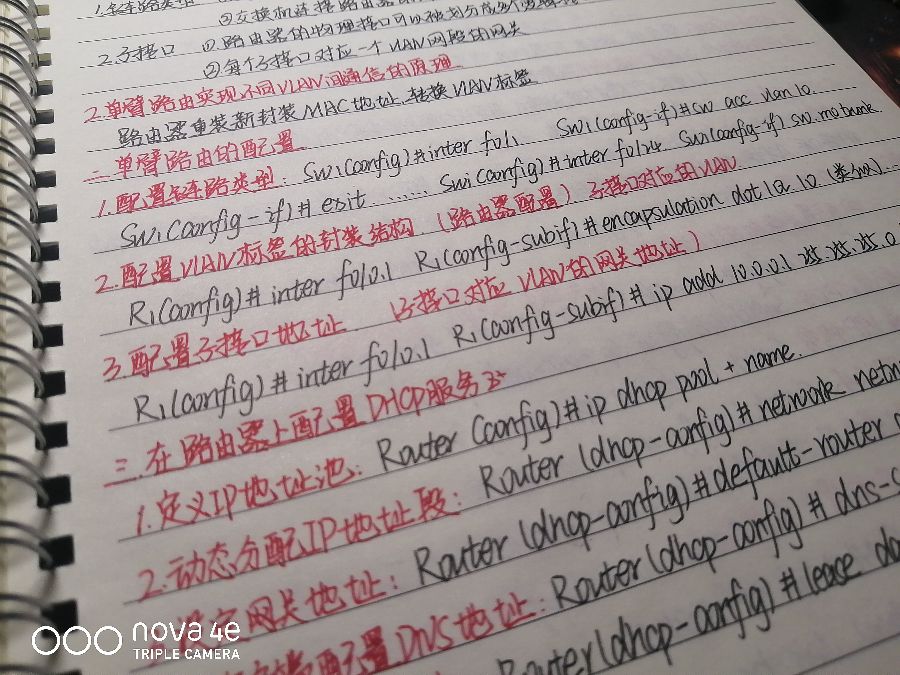 1.链路类型 ②交换机连接路由器的
2.子接口 ①路由器的物理接口可以被划分成多个逻辑
②每个子接口对应一个VLAN网段的网关
2.单臂路由实现不同VLAN间通信的原理
路由器重装新封装MAC地址,转换VLAN标签
二.单臂路由的配置
1.配置链路类型: Sw1(config)#inter f0/1 Sw1(config-if)#sw acc vlan 10.
Sw1(config-if)#exit ...... Sw1(config)#inter f0/24 Sw1(config-if) sw mo trunk
2.配置VLAN标签的封装结构 (路由器配置) 子接口对应的VLAN
R1(config)# inter f0/0.1 R1(config-subif)#encapsulation dot1Q 10 (类似)...
3.配置子接口地址 (子接口对应VLAN的网关地址)
R1(config)#inter f0/0.1 R1(config-subif)# ip add 10.0.0.1 255.255.255.0
三.在路由器上配置DHCP服务
1.定义IP地址池: Router (config)#ip dhcp pool + name.
2.动态分配IP地址段: Router (dhcp-config)#network netw
网关地址: Router(dhcp-config)#default-router
配置DNS地址: Router(dhcp-config)# dns-s
Router(dhcp-config)#lease da
nova 4e
TRIPLE CAMERA